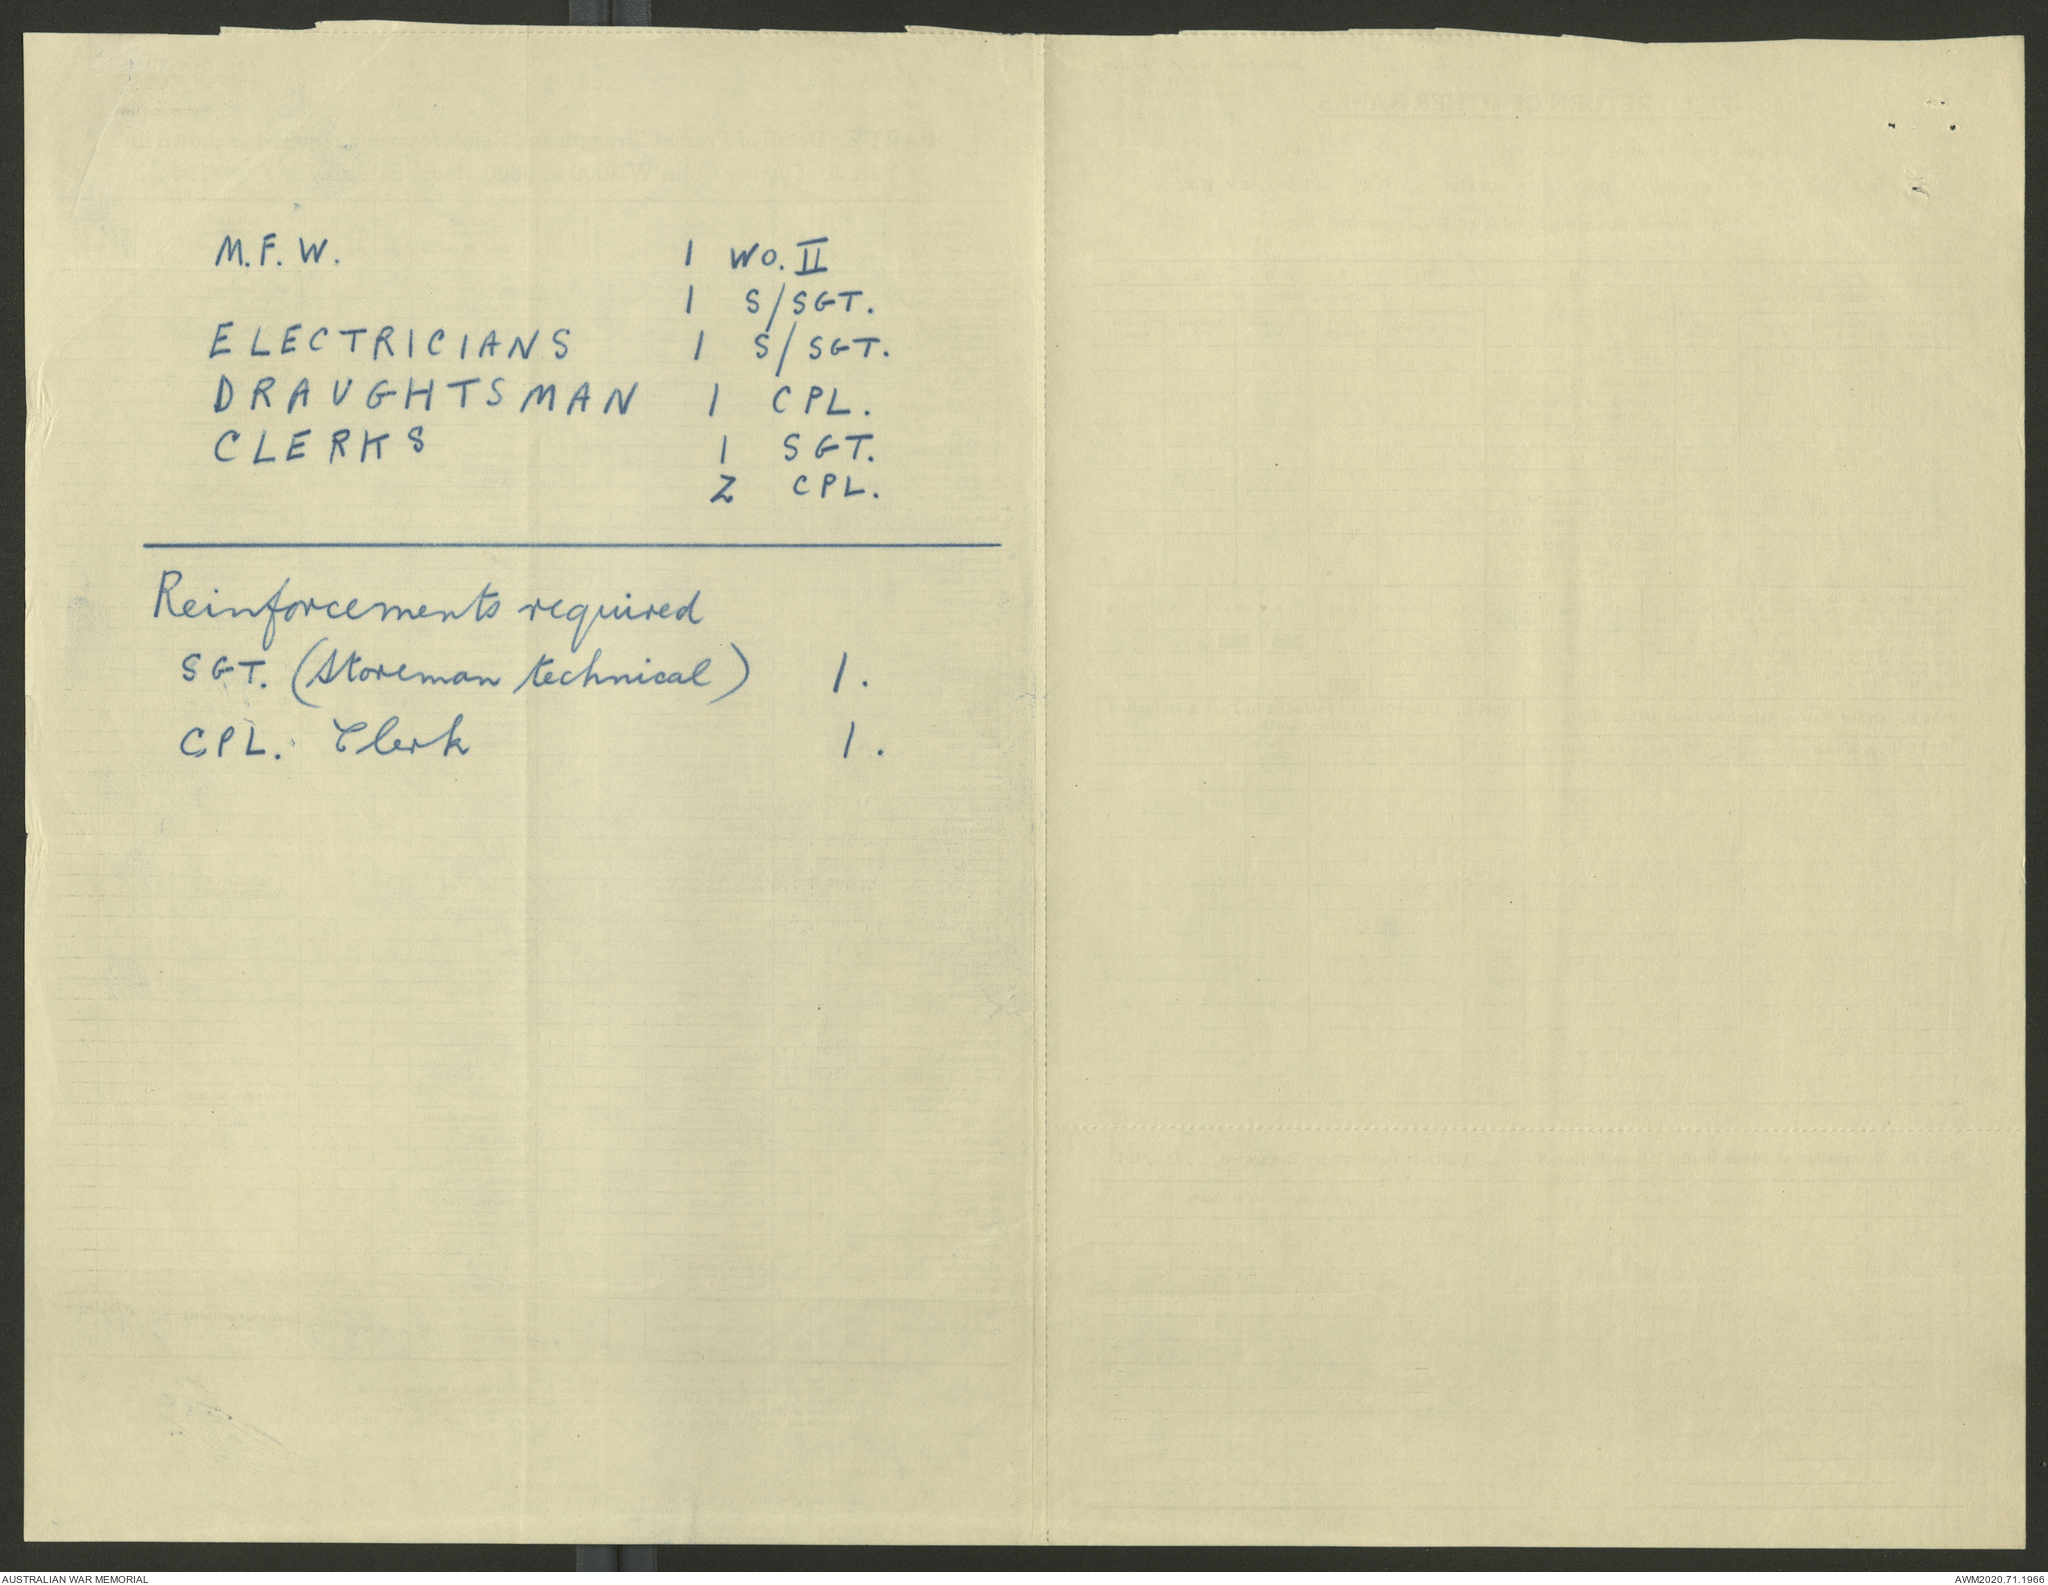 M.F.W. 1 WO. II
1 S/SGT.
ELECTRICIANS 1 S/SGT.
DRAUGHTSMAN 1 CPL.
CLERKS 1 SGT.
2 CPL.
Reinforcements required
SGT. (Storeman technical) 1.
CPL. Clerk 1.
AUSTRALIAN WAR MEMORIAL
AWM2020.71.1966